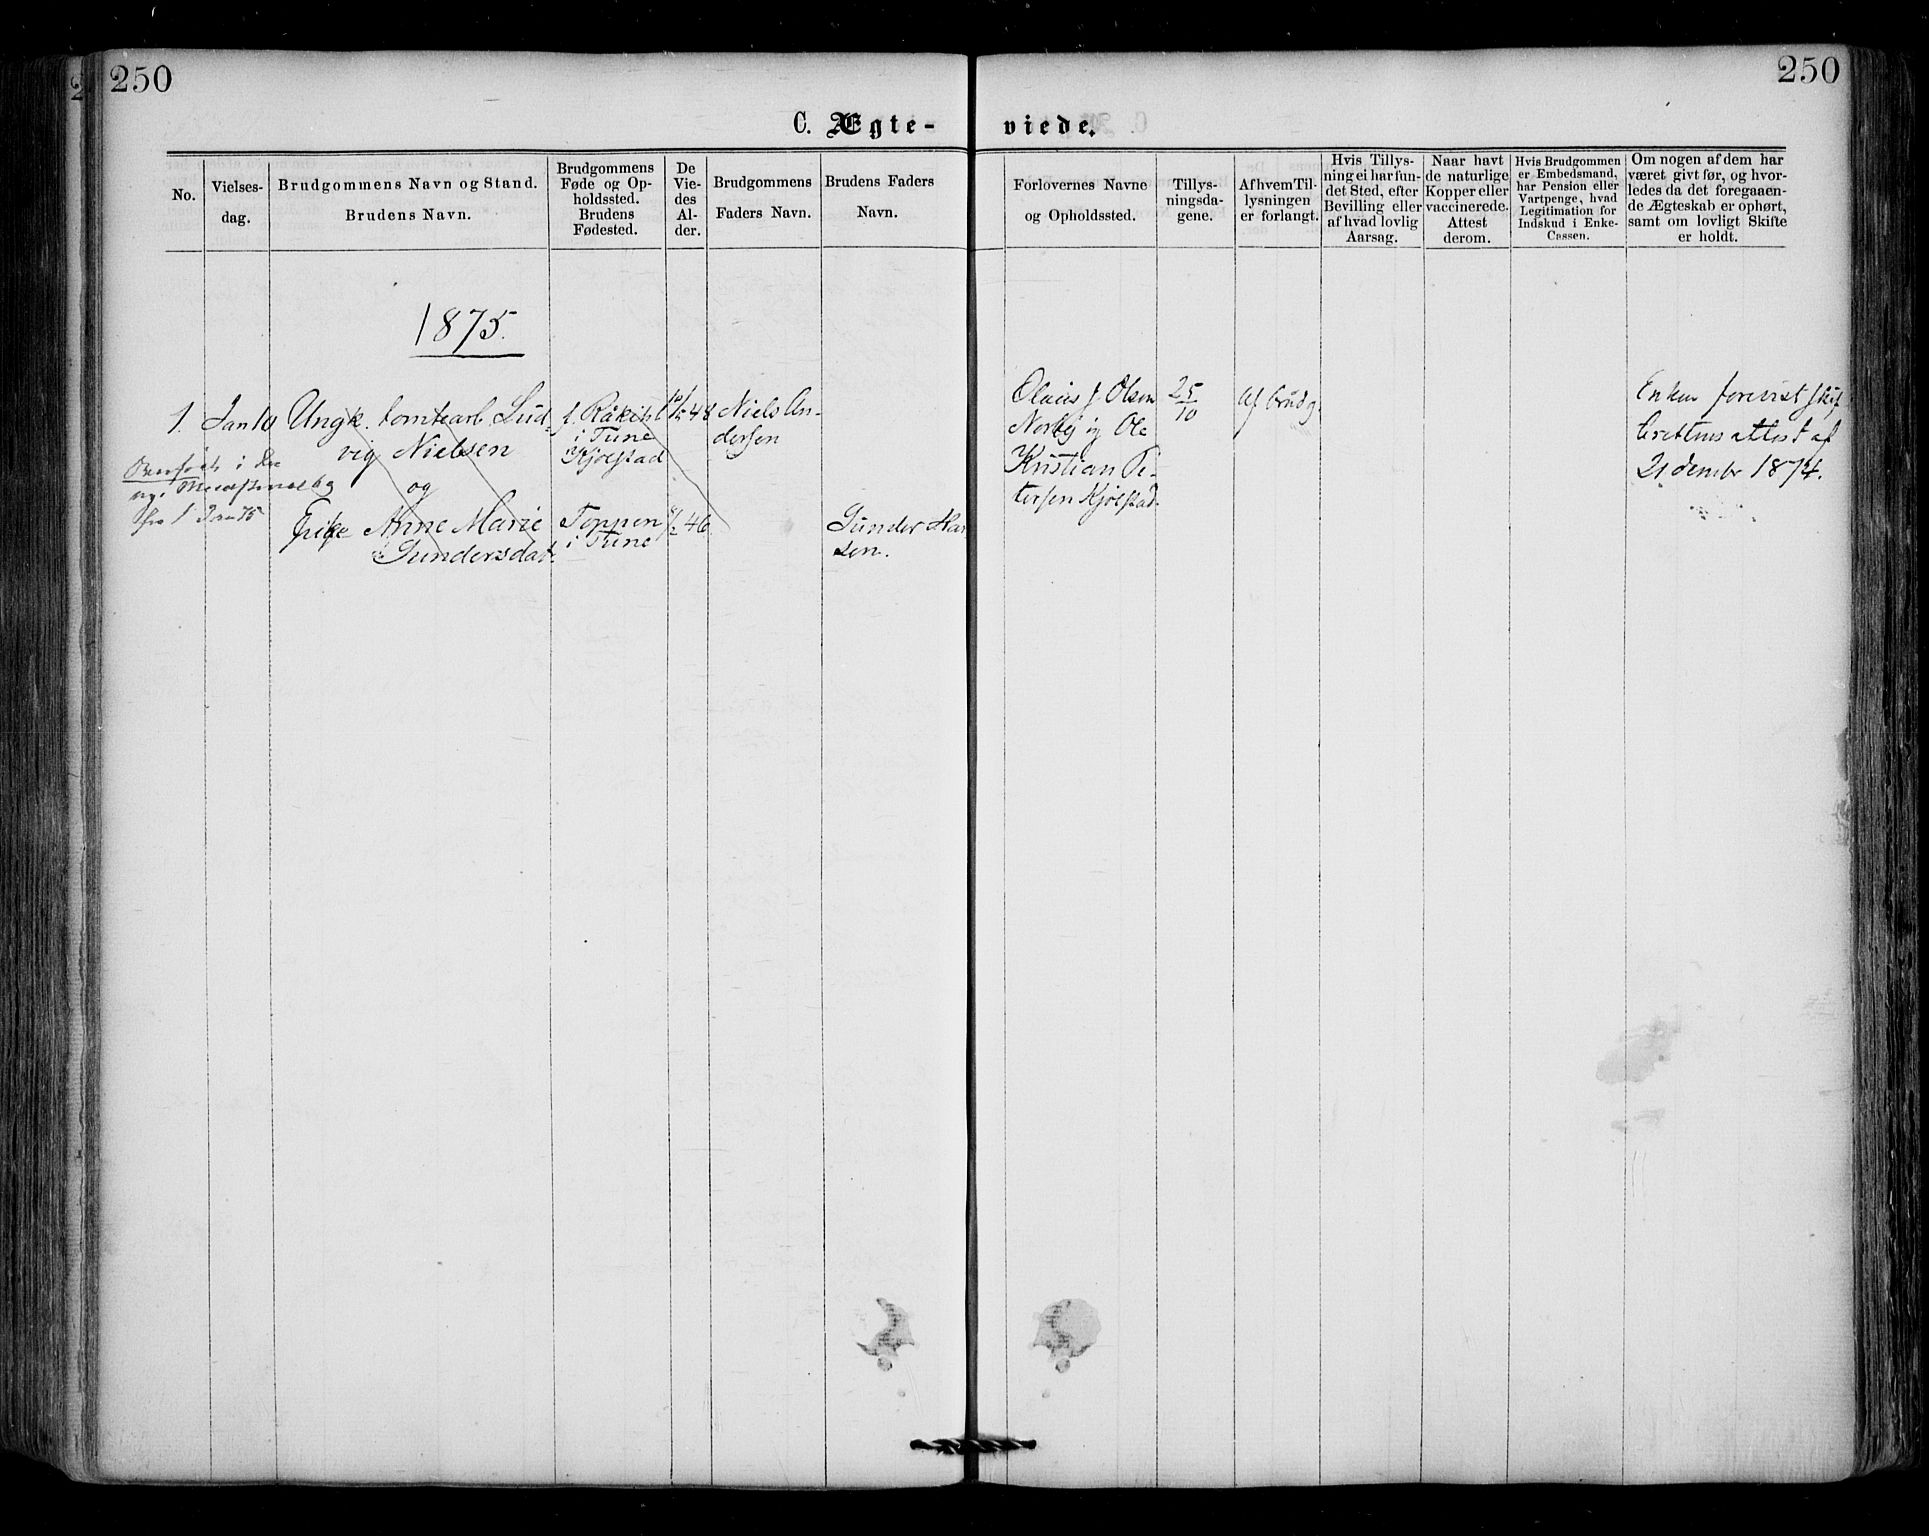 250
250
C. Ægte-
viede.
No.
Vielses-
dag.
Brudgommens Navn og Stand.
Brudens Navn.
Brudgommens
Føde og Op-
holdssted.
Brudens
Fødested.
De
Vie-
des
Al-
der.
Brudgommens
Faders Navn.
Brudens Faders
Navn.
Forlovernes Navne
og Opholdssted.
Tillys-
ningsda-
gene.
Af hvem Til-
lysningen
er forlangt.
Hvis Tillys-
ning ei har fun-
det Sted, efter
Bevilling eller
af hvad lovlig
Aarsag.
Naar havt
de naturlige
Kopper eller
vaccinerede.
Attest
derom.
Hvis Brudgommen
er Embedsmand,
har Pension eller
Vartpenge, hvad
Legitimation for
Indskud i Enke-
Cassen.
Om nogen af dem har
været givt før, og hvor-
ledes da det foregaaen-
de Ægteskab er ophørt,
samt om lovligt Skifte
er holdt.
1875.
1.
Jan 10
Ungk. tomtearb Lud-
vig Nielsen
og
Enke Anne Marie
Gundersdat.
f. Råkil
i Tune
Kjølstad
Toppen
i Tune
48
46
Niels An-
dersen
Gunder Han
sen.
Olaus J. Olsen
Norby og Ole
Kristian Pe-
tersen Kjølstad.
25
10
af brudg.
Enken forevist skif
brettens attest af
21 dember 1874.
Overført i den
nye
fra 1 Jan 75